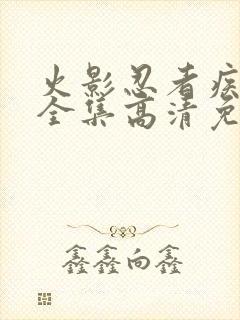 火影忍者疾
全集高清免
鑫鑫向鑫